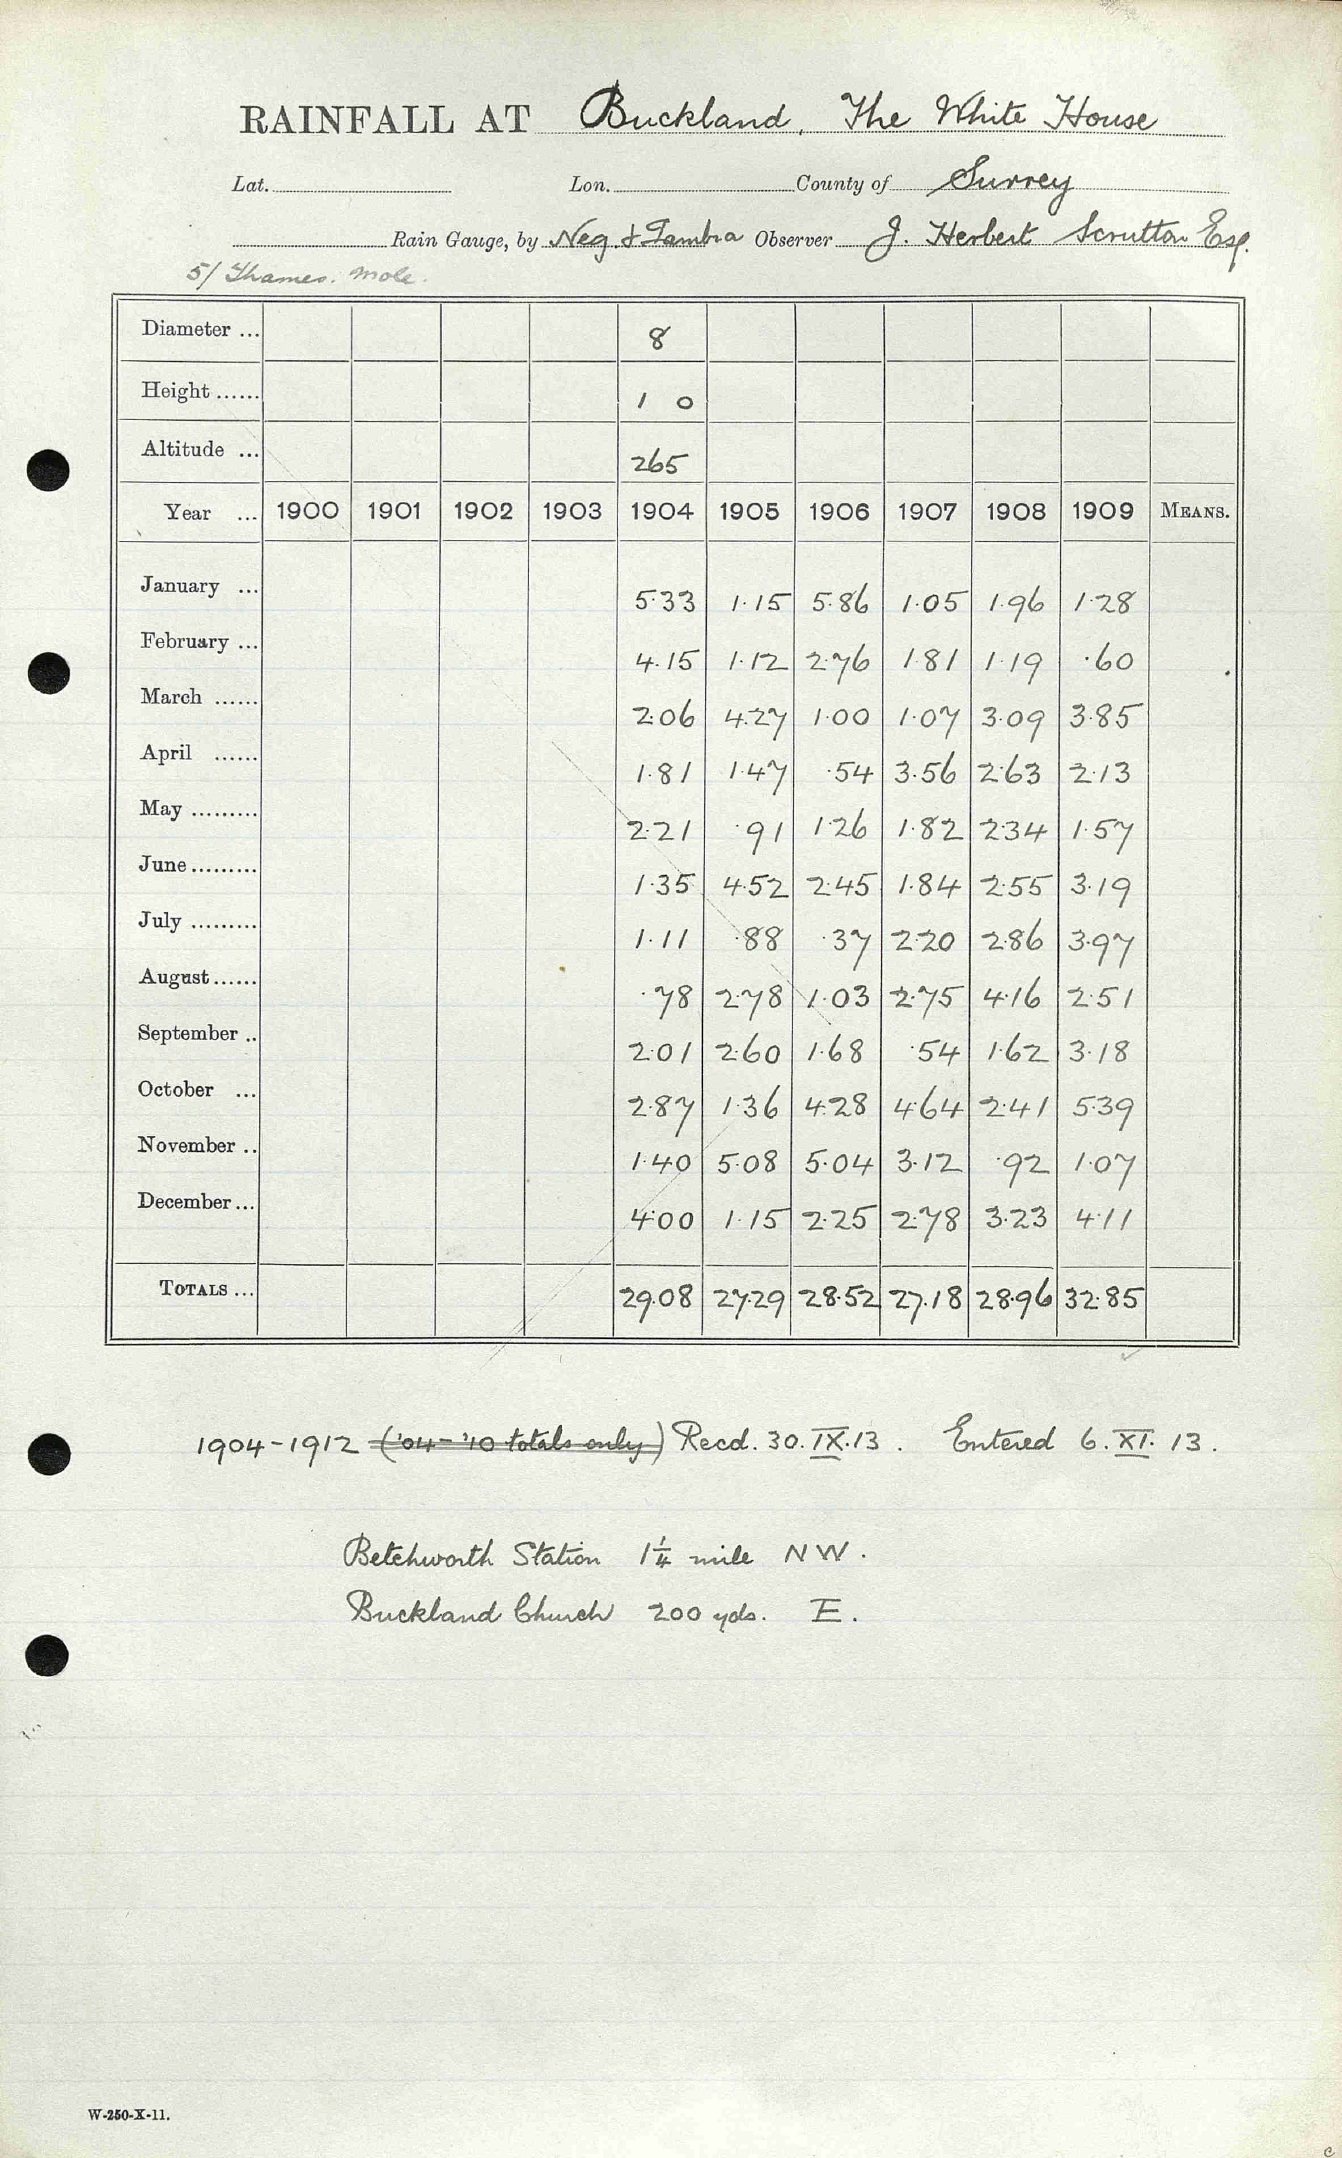 RAINFALL AT Buckland, The White House
Lat. Lon. County of Surrey
Rain Gauge, by Neg. & Zambra Observer J. Herbert Scrutton Esq.
5/ Thames. Mole.
Diameter ... 8
Height ...... 1 0
Altitude ... 265
Year ... 1900 1901 1902 1903 1904 1905 1906 1907 1908 1909 MEANS.
January ... 5.33 1.15 5.86 1.05 1.96 1.28
February ... 4.15 1.12 2.76 1.81 1.19 .60
March ...... 2.06 4.27 1.00 1.07 3.09 3.85
April ...... 1.81 1.47 .54 3.56 2.63 2.13
May ......... 2.21 .91 1.26 1.82 2.34 1.57
June ......... 1.35 4.52 2.45 1.84 2.55 3.19
July ......... 1.11 .88 .37 2.20 2.86 3.97
August ...... .78 2.78 1.03 2.75 4.16 2.51
September .. 2.01 2.60 1.68 .54 1.62 3.18
October ... 2.87 1.36 4.28 4.64 2.41 5.39
November .. 1.40 5.08 5.04 3.12 .92 1.07
December ... 4.00 1.15 2.25 2.78 3.23 4.11
TOTALS ... 29.08 27.29 28.52 27.18 28.96 32.85
1904-1912 ('04-'10 totals only) Recd. 30.IX.13. Entered 6.XI.13.
Betchworth Station 1¼ mile NW.
Buckland Church 200 yds. E.
W-250-X-11.
c